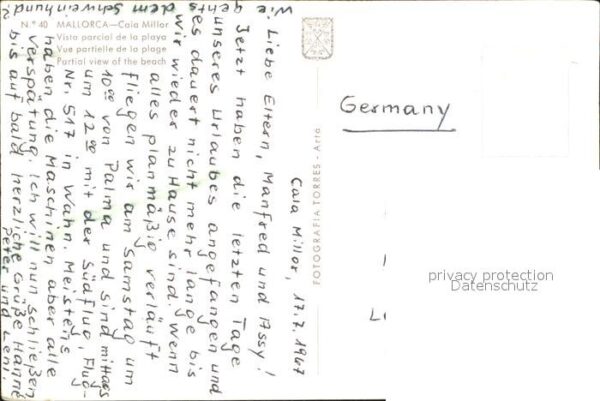 N.º 40 MALLORCA—Cala Millor
Vista parcial de la playa
Vue partielle de la plage
Partial view of the beach
FOTOGRAFIA TORRES - Arta
Germany
privacy protection
Datenschutz
Cala Millor, 17.7.1967
Liebe Eltern, Manfred und Assy!
Jetzt haben die letzten Tage
unseres Urlaubes angefangen und
es dauert nicht mehr lange bis
wir wieder zu Hause sind. Wenn
alles planmäßig verläuft
fliegen wir am Samstag um
10⁰⁰ von Palma und sind mittags
um 12⁰⁰ mit der Südflug, Flug-
Nr. 517 in Wahn. Meistens
haben die Maschinen aber alle
Verspätung. Ich will nun schließen
bis auf bald herzliche Grüße Hanne
Peter und Leni
Wie gehts dem Schweinhund?